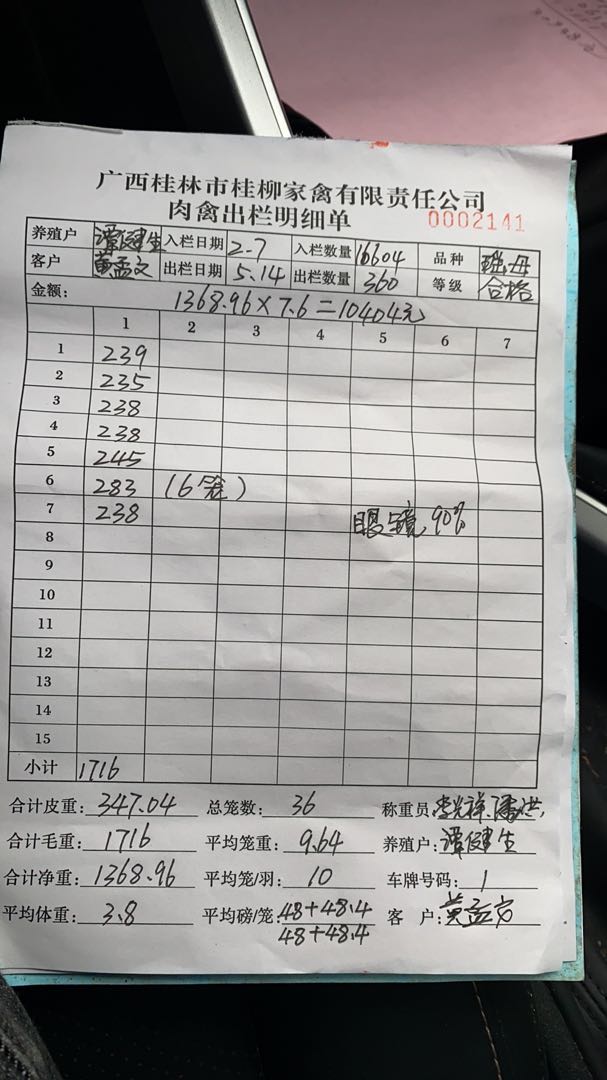 广西桂林市桂柳家禽有限责任公司
肉禽出栏明细单 0002141
养殖户 谭健生 入栏日期 2.7 入栏数量 16604 品种
客户 黄孟文 出栏日期 5.14 出栏数量 360 等级 合格
金额: 1368.96×7.6=10404元
1 2 3 4 5 6 7
1 239
2 235
3 238
4 238
5 245
6 283 (6笼)
7 238 眼镜 90%
8
9
10
11
12
13
14
15
小计 1716
合计皮重: 347.04 总笼数: 36 称重员: 李光祥、潘洪
合计毛重: 1716 平均笼重: 9.64 养殖户: 谭健生
合计净重: 1368.96 平均笼/羽: 10 车牌号码: 1
平均体重: 3.8 平均磅/笼: 48+48.4 客 户: 黄孟文
48+48.4